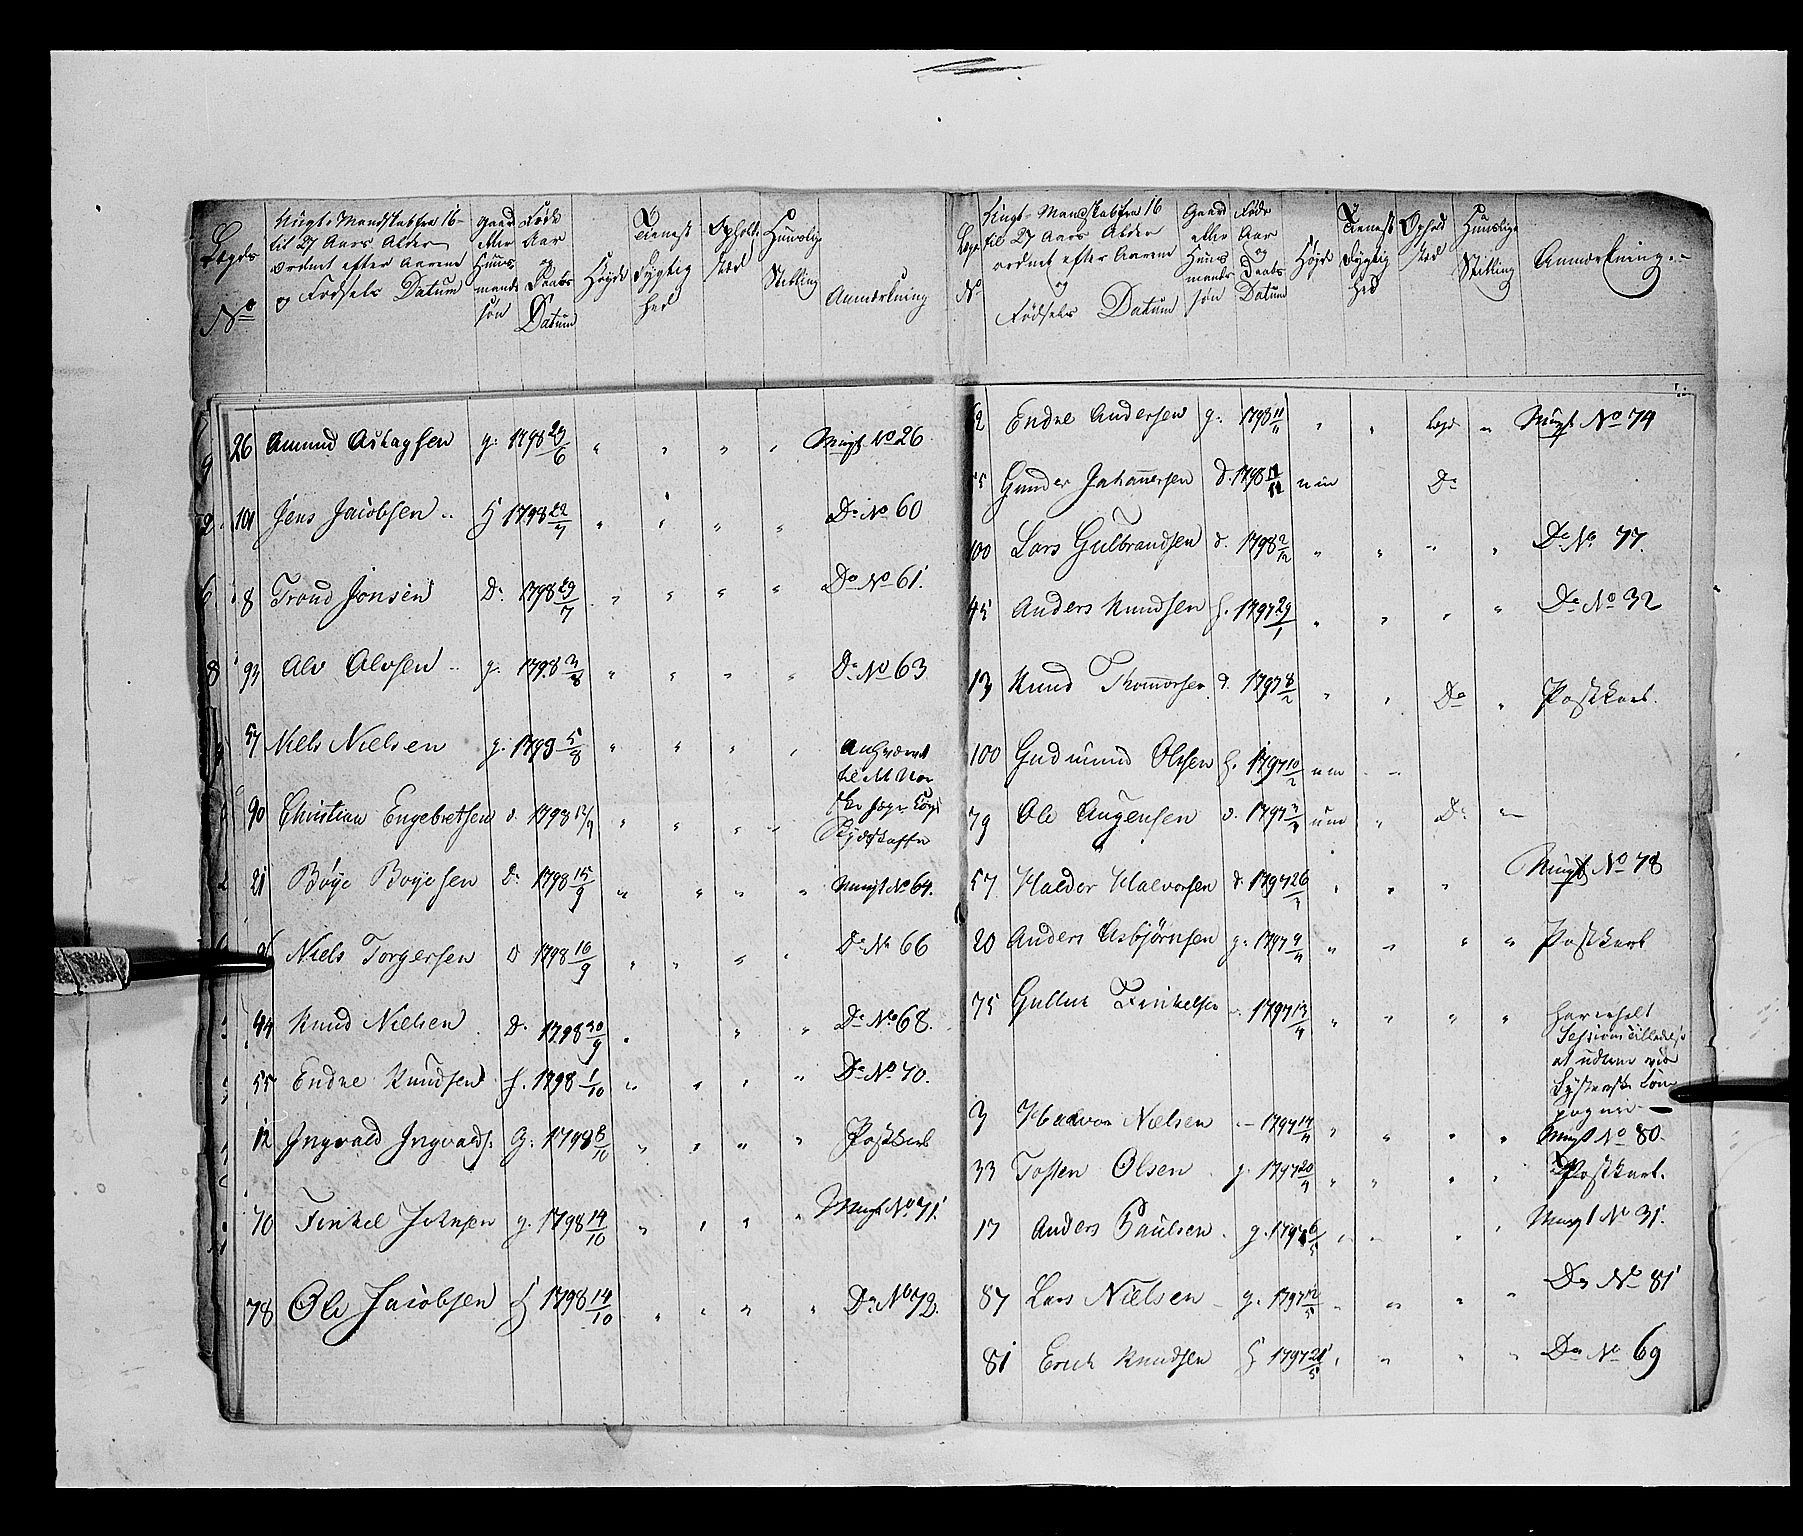 Lægds No
Ungt Mandskab fra 16
til 27 Aars Alder
ordnet efter Aarene
og Fødsels Datum
Gaard eller Huusmands søn
Føde Aar og Daabs Datum
Høyde
Tieneste Dygtighed
Opholds Sted
Huuslig Stilling
Anmærkning
26 Amund Aslagsen g. 1798 23/6 " " " " Mngt No 26
101 Jens Jacobsen .. H 1798 22/7 " " " " Do No 60
8 Trond Jonsen Do 1798 29/7 " " " " Do No 61.
93 Alv Alvsen .. g. 1798 3/8 " " " " Do No 63
57 Niels Nielsen g. 1798 5/8 " " " "
90 Christian Engebretsen d. 1798 12/9 " " " "
21 Böye Boyesen Do 1798 15/9 " " " " Mngt No 64.
Niels Torgersen D 1798 16/9 " " " " Do No 66
44 Knud Nielsen Do 1798 30/9 " " " Do No 68.
55 Endre Knudsen H. 1798 1/10 " " " " Do No 70.
12 Ingvald Ingvalds. G. 1798 8/10 " " " " Postkarl
70 Tinkel Johnsen g. 1798 14/10 " " " " Mngt No 71.
78 Ole Jacobsen H 1798 14/10 " " " " Do No 72.
Lægd No
Ungt Mandskab fra 16
til 27 Aars Alder
ordnet efter Aarene
og
Fødsels Datum
Gaard eller Huusmands søn
Føde Aar og Daabs Datum
Høyde
Tieneste Dygtighed
Ophold sted
Huuslige Stilling
Anmærkning.-
Endre Andersen g. 1798 11/11 " " Lægd " Mngt No 74
55 Gunder Johannesen d. 1798 Do
100 Lars Gulbrandsen d. 1798 2/12 " " " " Do No 77.
45 Anders Knudsen H. 1797 29/1 " " " " Do No 32
13 Knud Thomorsen d. 1797 8/2 " " Do " Postkarl.
100 Gudmund Olssen H. 1797 10/2
79 Ole Augensen d. 1797 Do
57 Halvor Halvorsen d. 1797 26/3 " " " Mngt No 78
20 Anders Asbjørnsen g. 1797 9/4 " " " " Postkarl
75 Gullik Tinkelsen 1797 13/4 " " " " Har erholdt
Sessions tilladelse
at udtiene ved
3 Halvor Nielsen - 1797 14/4 " " " " Mngt No 80.
33 Tosten Olsen g. 1797 20/4 " " " " Postkarl.
17 Anders Paulsen. g. 1797 6/5 " " " " Mngt No 31.
87 Lars Nielsen - g. 1797 12/5 " " " " Do No 81
81 Erich Knudsen H 1797 21/5 " " " " Do No 69